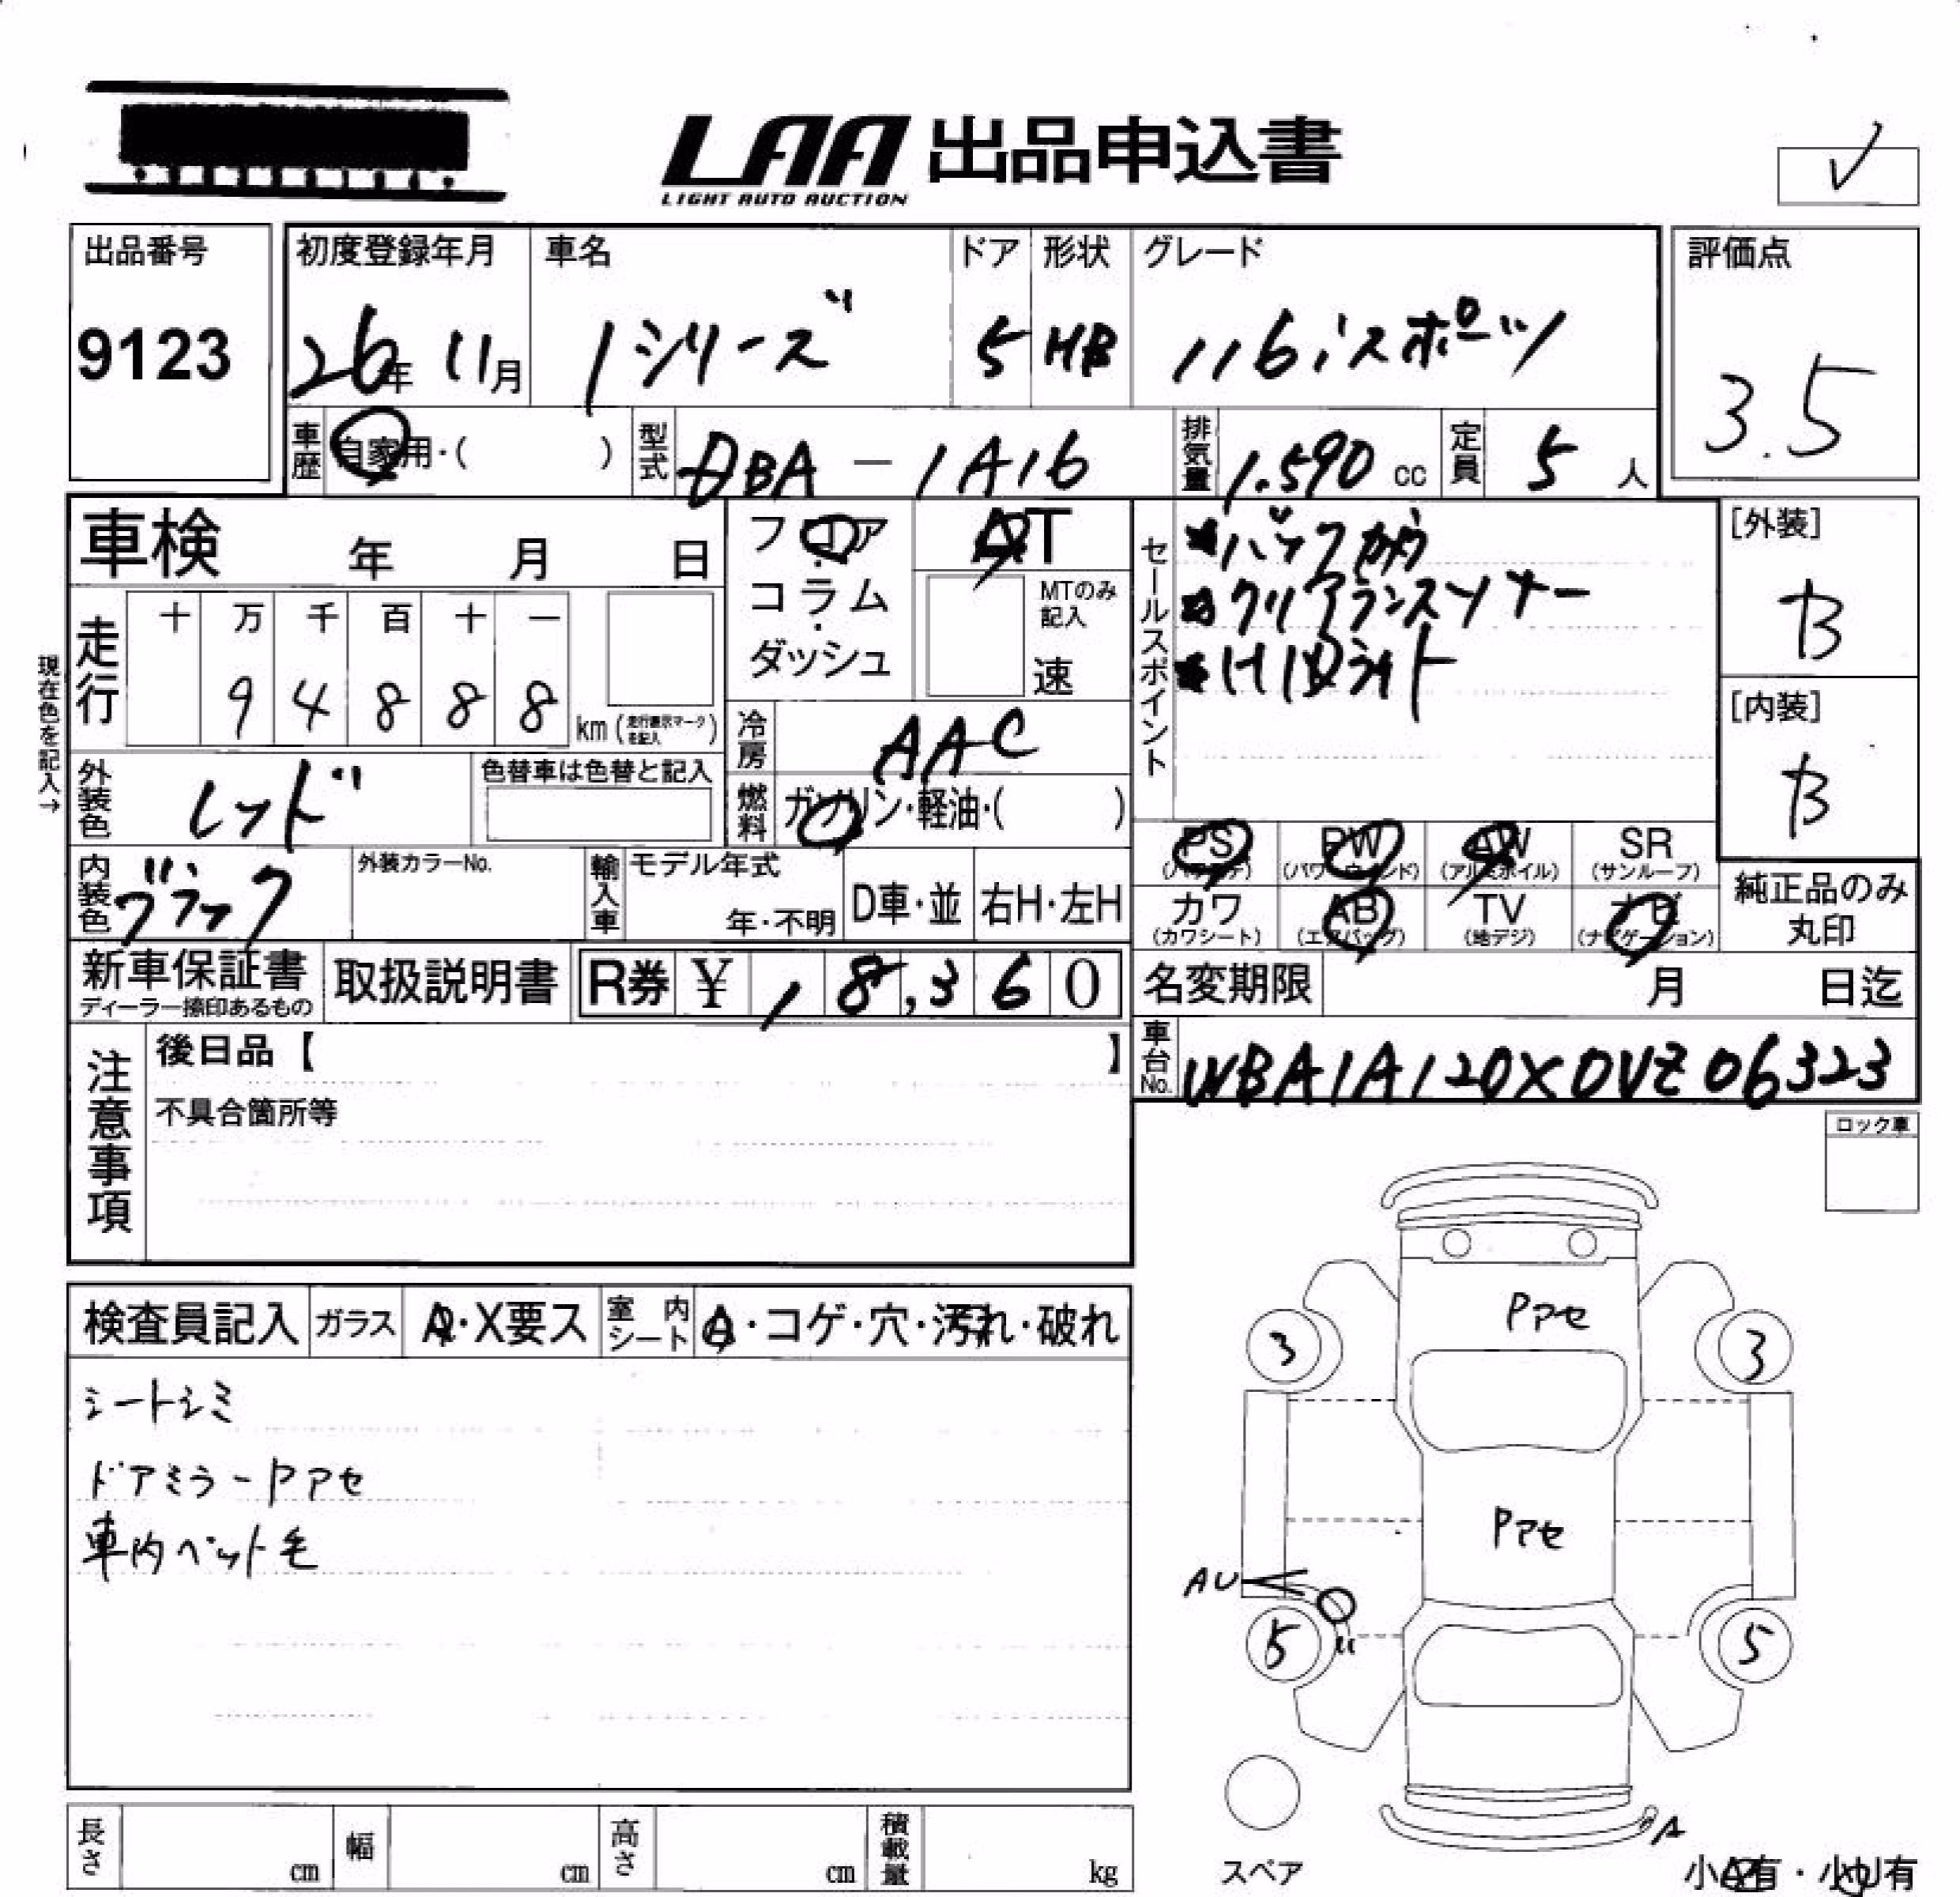 LAA 出品申込書
LIGHT AUTO AUCTION
✓
出品番号
9123
初度登録年月
26年 11月
車名
1シリーズ
ドア
5
形状
HB
グレード
116iスポーツ
評価点
3.5
車歴
自家用・( )
型式
DBA-1A16
排気量
1.590 cc
定員
5 人
車検 年 月 日
フロア・コラム・ダッシュ
AT
MTのみ記入
速
セールスポイント
*バックカメラ
*クリアランスソナー
*HIDライト
[外装]
B
[内装]
B
現在色を記入→
走行
十 万 千 百 十 一
9 4 8 8 8
km (走行表示マークを記入)
冷房
AAC
燃料
ガソリン・軽油・( )
外装色
レッド
色替車は色替と記入
内装色
ブラック
外装カラーNo.
輸入車
モデル年式
年・不明
D車・並
右H・左H
PS
PW (パワーウインド)
AW (アルミホイル)
SR (サンルーフ)
カワ (カワシート)
AB (エアバッグ)
TV (地デジ)
ナビ (ナビゲーション)
純正品のみ丸印
新車保証書
ディーラー捺印あるもの
取扱説明書
R券 ¥ 18,360
名変期限 月 日迄
車台No.
WBA1A120X0VZ06323
注意事項
後日品【 】
不具合箇所等
ロック車
検査員記入
ガラス
A・X要ス
室内シート
A・コゲ・穴・汚れ・破れ
シートシミ
ドアミラーPアセ
車内ペット毛
Pアセ
3
3
Pアセ
AU
5
〃
5
A
スペア
小A有・小U有
長さ cm
幅 cm
高さ cm
積載量 kg